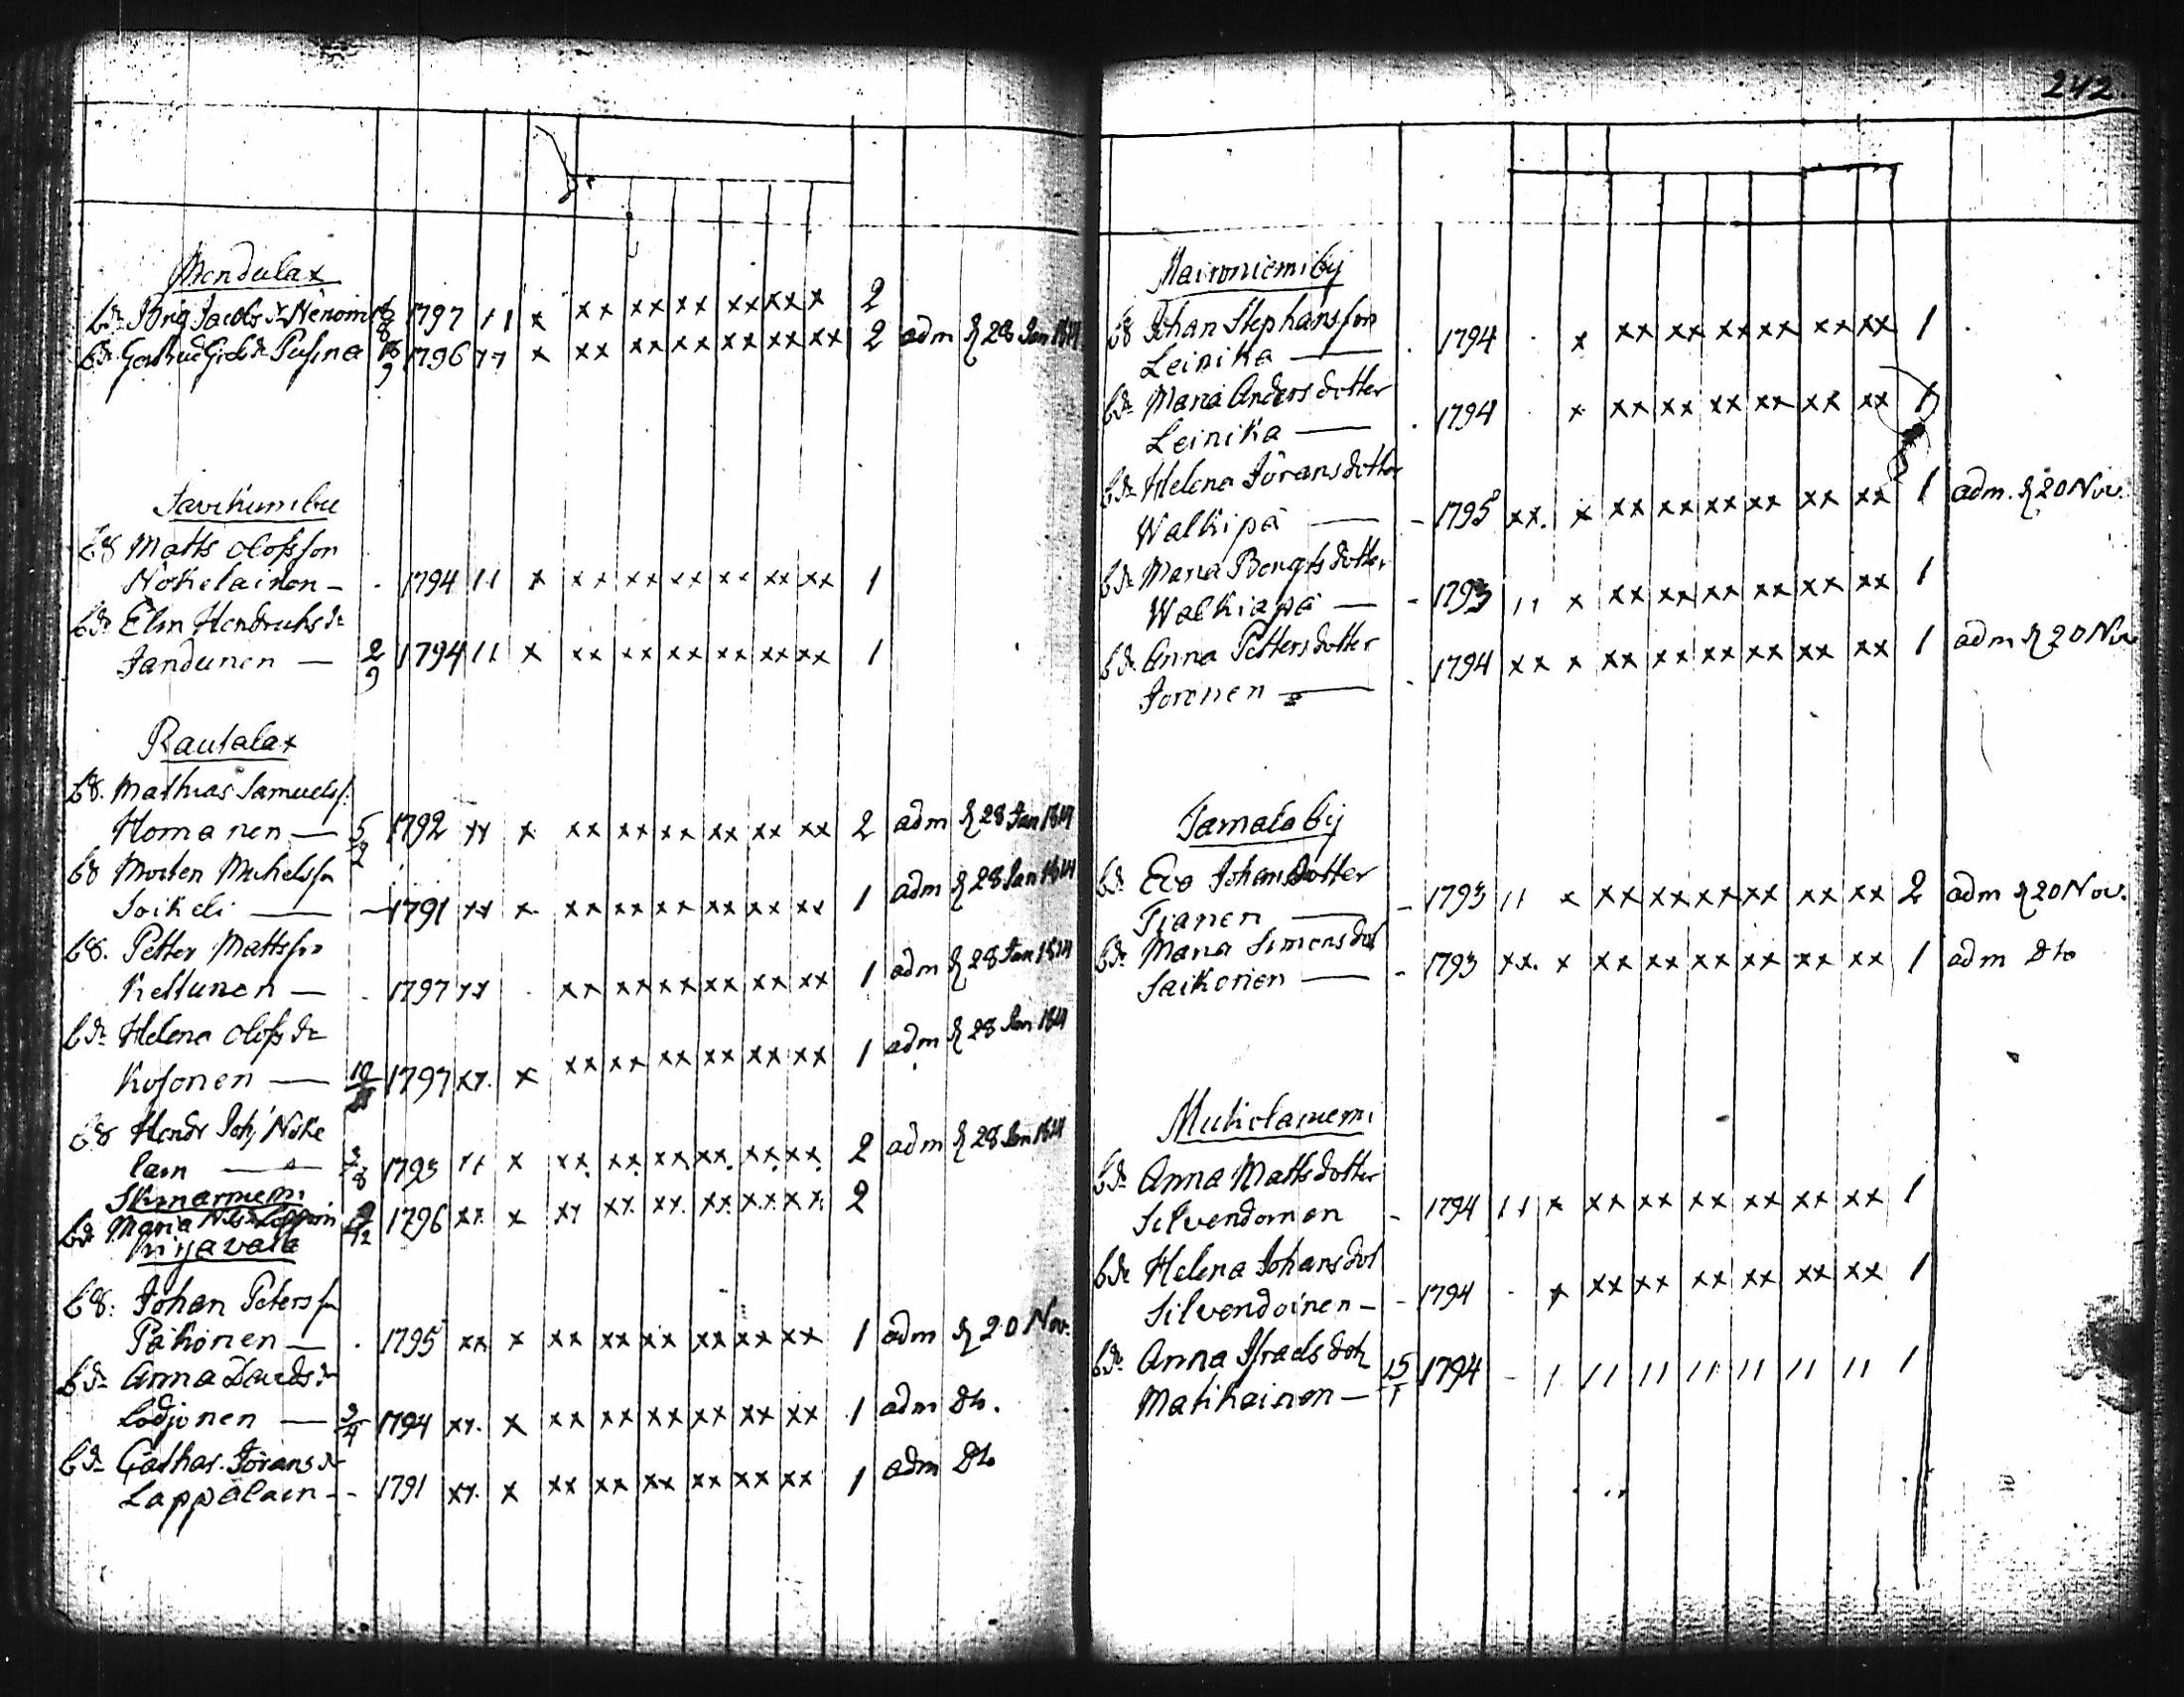 242
Mendulax
bdr Brig Jacobs dr Nenonen 1797 11 x xx xx xx xx xx x 2
bdr Gertrud Grels dr Pusina 1796 xx x xx xx xx xx xx xx 2 adm d 28 Jan 1814
Savikumibu
bs Matts Olofsson
Nokelainen - 1794 11 x xx xx xx xx xx xx 1
bdr Elin Hendrichs dr
Tandunen — 2/9 1794 11 x xx xx xx xx xx xx 1
Rautalax
bs. Mathias Samuelss.
Homanen — 5/2 1792 xx x xx xx xx xx xx xx 2 adm d 28 Jan 1814
bs Morten Michelsson
Soikeli — 1791 xx x xx xx xx xx xx xx 1 adm d 28 Jan 1814
bs. Petter Mattsson
Kettunen — 1797 xx xx xx xx xx xx xx 1 adm d 28 Jan 1814
bdr Helena Olofs dr
Kosonen — 1797 xx. x xx xx xx xx xx xx 1 adm d 28 Jan 1814
bs Hendr Joh. Noke
lain — 3/8 1793 11 x xx xx xx xx xx xx 2 adm d 28 Jan 1814
Skinarniemi
bdr Maria 1796 xx. x xx xx xx xx xx xx 2
Kijavala
bs: Johan Petersson
Päkönen — 1795 xx x xx xx xx xx xx xx 1 adm d 20 Nov.
bdr Anna Davids dr
Lodjonen — 3/4 1794 xx. x xx xx xx xx xx xx 1 adm Dto.
bdr Cathar. Jörans dr
Lappalain - - 1791 xx. x xx xx xx xx xx xx 1 adm Dto
Maironiemi by
bs Johan Stephansson
Leinika — 1794 x xx xx xx xx xx xx 1
bdr Maria Andersdotter
Leinika — 1794 x xx xx xx xx xx xx 1
bdr Helena Jöransdotter
Walkipä — - 1795 xx. x xx xx xx xx xx xx 1 adm. d 20 Nov.
bdr Maria Bengtsdotter
Walkiapä — - 1793 11 x xx xx xx xx xx xx 1
bdr Anna Pettersdotter
Joronen — 1794 xx x xx xx xx xx xx xx 1 adm d 20 Nov
Jamala by
bdr Eva Johansdotter
Tianen — - 1793 11 x xx xx xx xx xx xx 2 adm d 20 Nov.
bdr Maria Simonsdot
Saikonen — - 1793 xx. x xx xx xx xx xx xx 1 adm Dto
Mickelaniemi
bdr Anna Mattsdotter
Silvendoinen - 1794 11 x xx xx xx xx xx xx 1
bdr Helena Johansdot
Silvendoinen - - 1794 - x xx xx xx xx xx xx 1
bdr Anna Israelsdotr
Matikainen — 15/1 1794 - 1 11 11 11 11 11 11 1